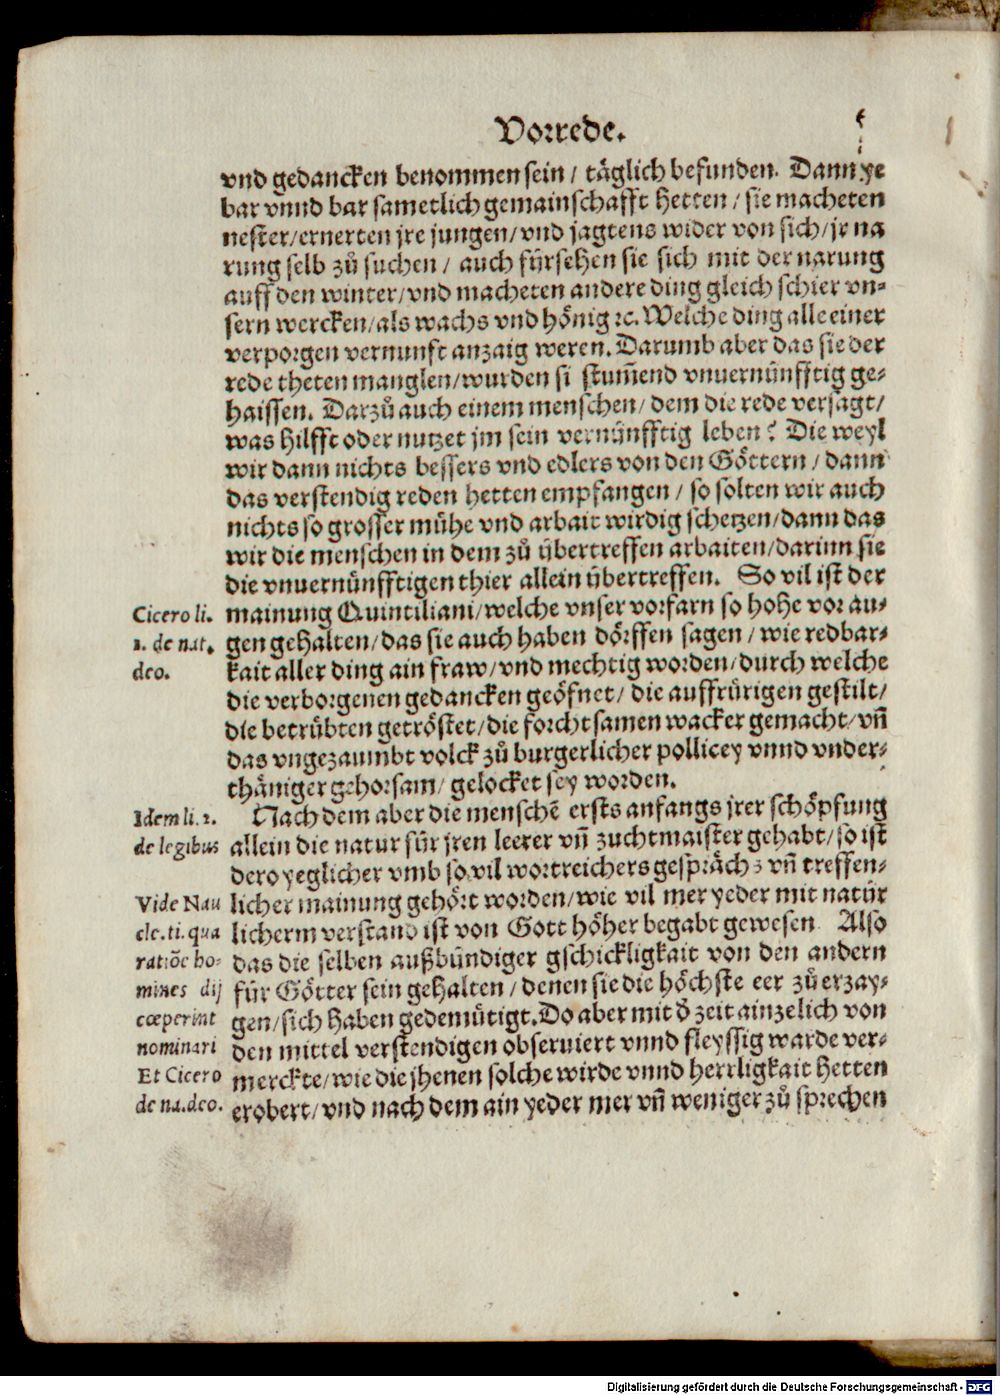 Vorrede.
vnd gedancken benommen sein / täglich befunden. Dann ye
bar vnnd bar sametlich gemainschafft hetten / sie macheten
nester/ernerten jre jungen/vnd jagtens wider von sich/jr na
rung selb zů suchen / auch fürsehen sie sich mit der narung
auff den winter/vnd macheten andere ding gleich schier vn-
sern wercken/als wachs vnd hönig ꝛc. Welche ding alle einer
verporgen vernunft anzaig weren. Darumb aber das sie der
rede theten manglen/wurden si stum̃end vnuernünfftig ge-
haissen. Darzů auch einem menschen/ dem die rede versagt/
was hilfft oder nutzet jm sein vernünfftig leben? Die weyl
wir dann nichts bessers vnd edlers von den Göttern / dann
das verstendig reden hetten empfangen / so solten wir auch
nichts so grosser mühe vnd arbait wirdig schetzen/dann das
wir die menschen in dem zů übertreffen arbaiten/darinn sie
die vnuernünfftigen thier allein übertreffen. So vil ist der
Cicero li.
mainung Quintiliani/welche vnser vorfarn so hohe vor au-
1. de nat.
gen gehalten/das sie auch haben dörffen sagen / wie redbar-
deo.
kait aller ding ain fraw/vnd mechtig worden/durch welche
die verborgenen gedancken geöfnet/ die auffrürigen gestilt/
die betrübten getröstet/die forchtsamen wacker gemacht/vñ
das vngezaumbt volck zů burgerlicher pollicey vnnd vnder-
thäniger gehorsam/ gelocket sey worden.
Idem li. 1.
Nach dem aber die menschẽ ersts anfangs jrer schöpfung
de legibus
allein die natur für jren leerer vñ zuchtmaister gehabt/so ist
dero yeglicher vmb so vil wortreichers gespräch ꝫ vñ treffen-
Vide Nau
licher mainung gehört worden/wie vil mer yeder mit natür
cle. ti. qua
licherm verstand ist von Gott höher begabt gewesen Also
ratiõe ho-
das die selben außbündiger gschickligkait von den andern
mines dij
für Götter sein gehalten / denen sie die höchste eer zů erzay-
cœperint
gen/sich haben gedemütigt. Do aber mit ð zeit ainzelich von
nominari
den mittel verstendigen obseruiert vnnd fleyssig warde ver-
Et Cicero
merckte/wie die jhenen solche wirde vnnd herrligkait hetten
de na.deo.
erobert/vnd nach dem ain yeder mer vñ weniger zů sprechen
Digitalisierung gefördert durch die Deutsche Forschungsgemeinschaft - DFG